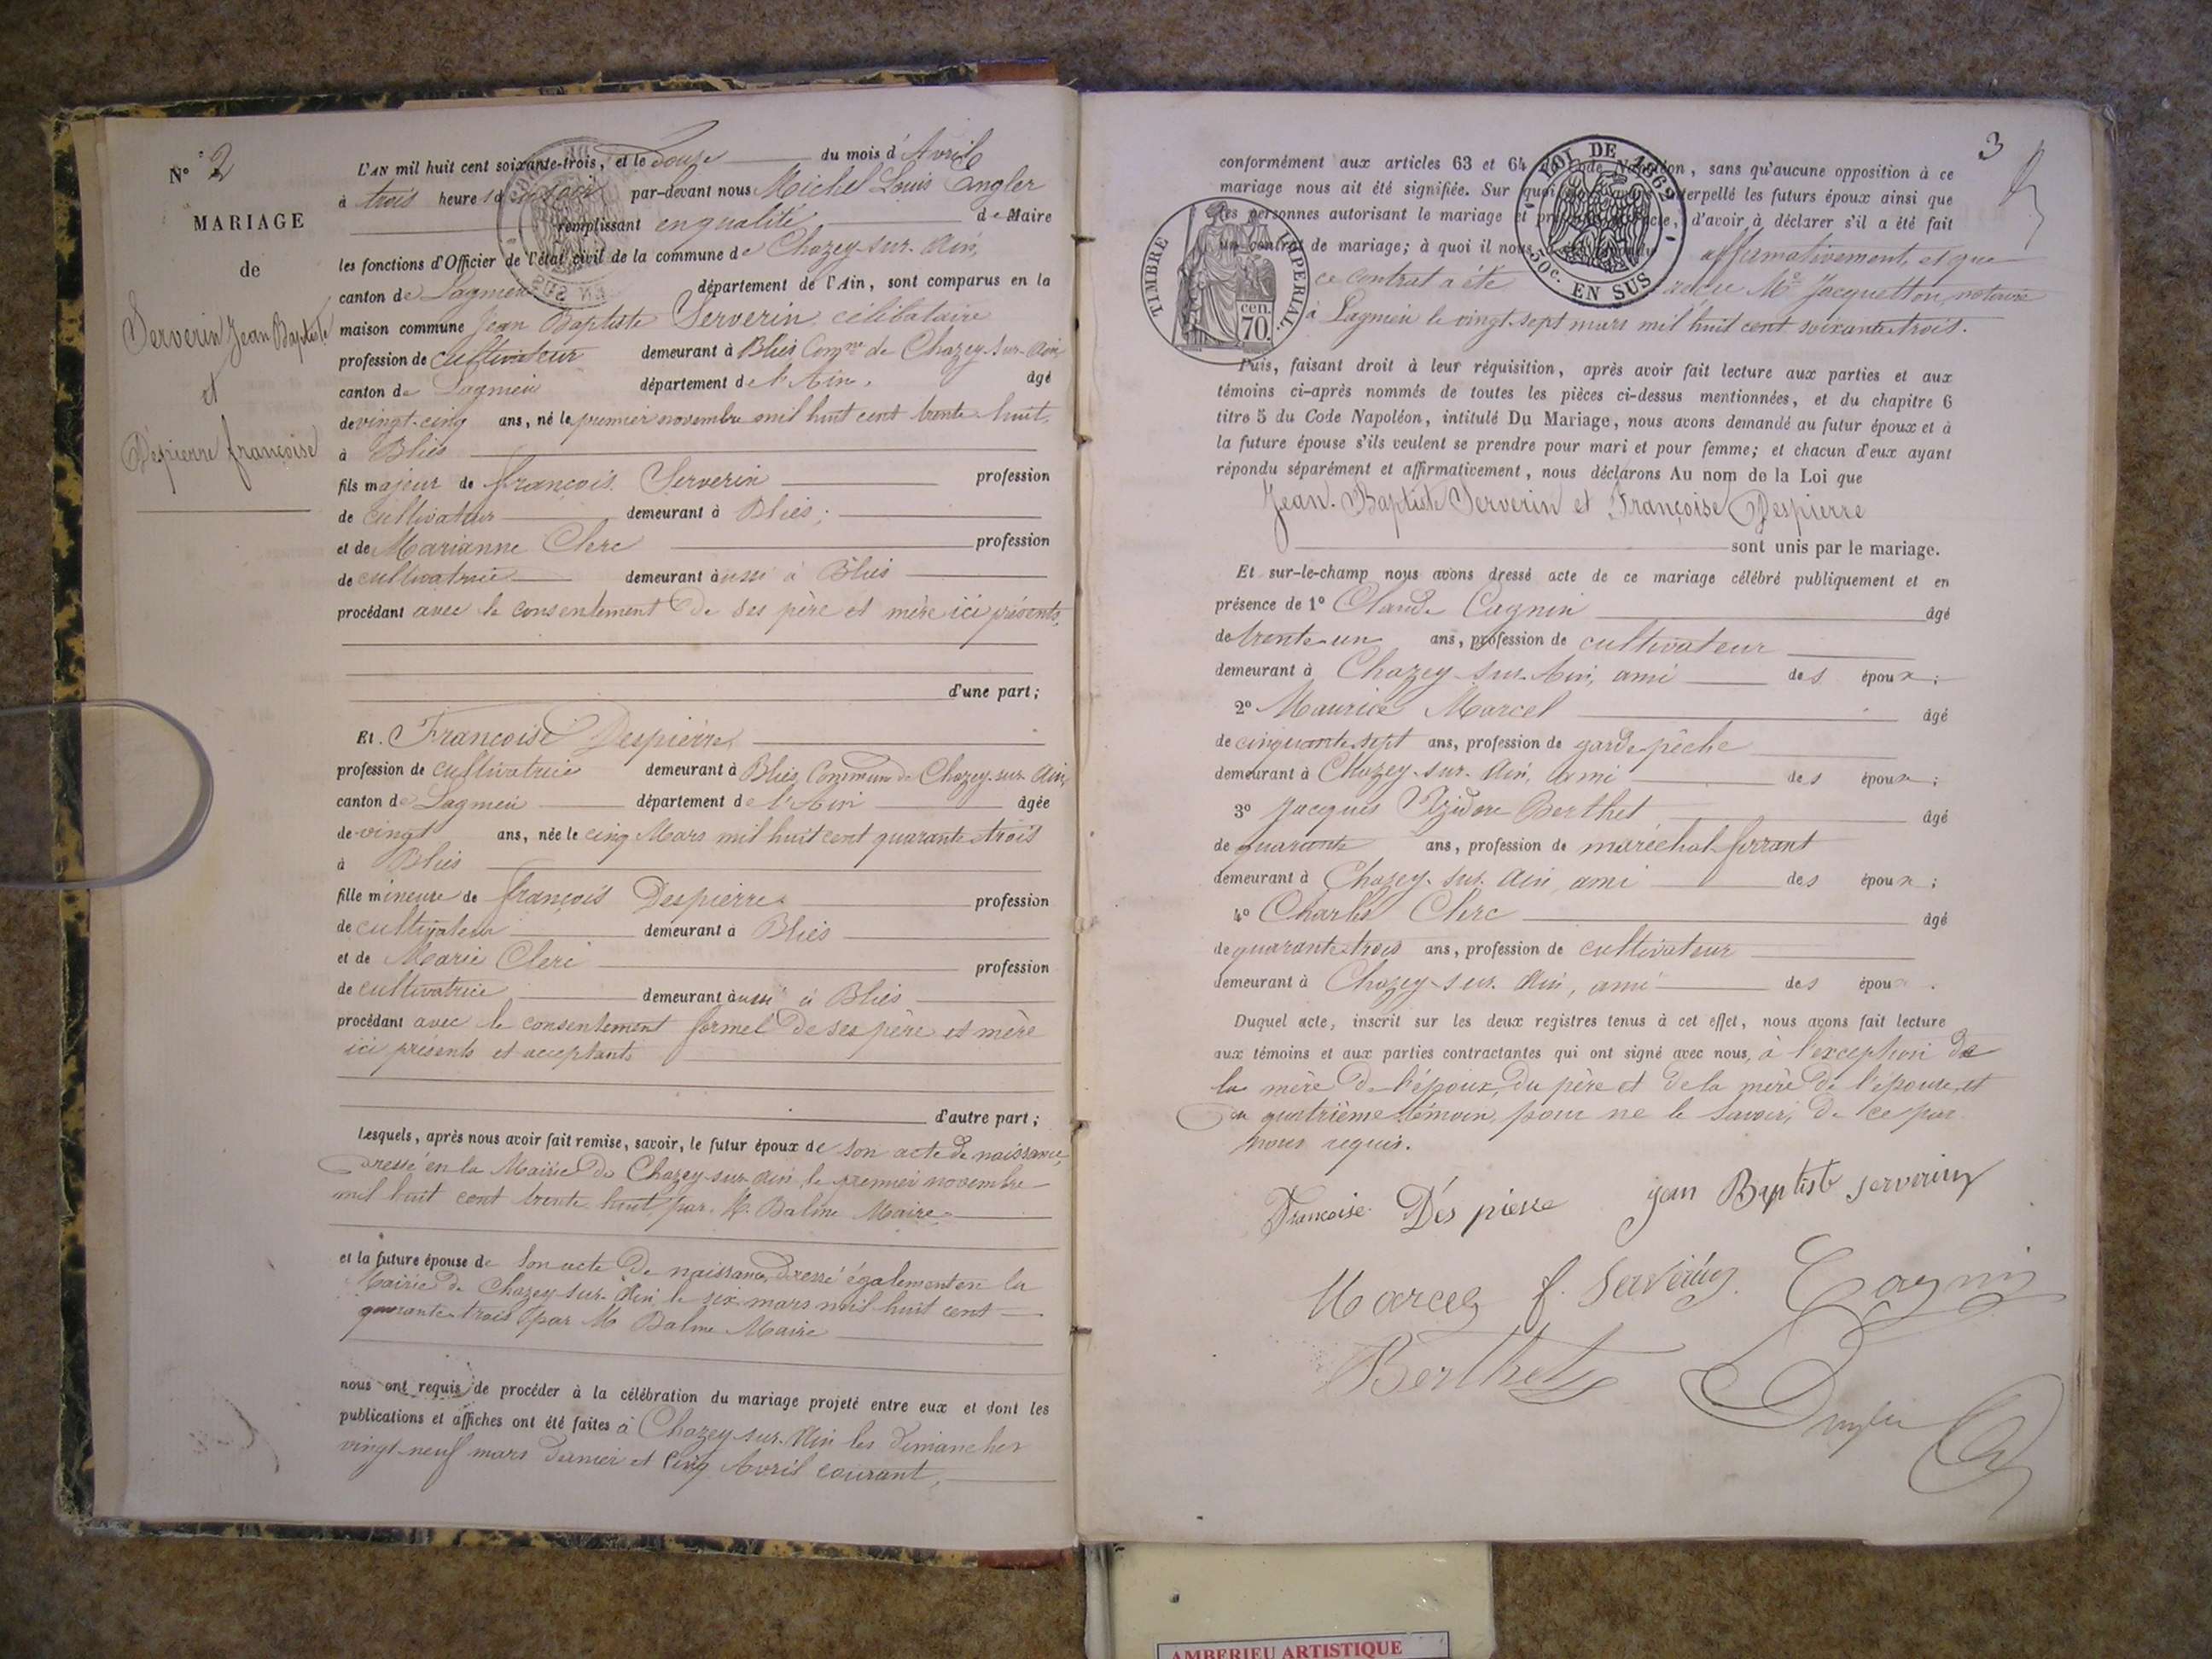 N° 2
MARIAGE
de
Serverin Jean Baptiste
et
Déspierre françoise
L'AN mil huit cent soixante-trois, et le douze du mois d'Avril
à trois heures du soir par-devant nous Michel Louis Engler
remplissant en qualité de Maire
les fonctions d'Officier de l'état civil de la commune de Chazey-sur-Ain,
canton de Lagnieu département de l'Ain, sont comparus en la
maison commune Jean Baptiste Serverin célibataire
profession de cultivateur demeurant à Bliès Comne de Chazey-sur-Ain
canton de Lagnieu département de l'Ain, âgé
de vingt-cinq ans, né le premier novembre mil huit cent trente-huit,
à Bliès
fils majeur de françois Serverin profession
de cultivateur demeurant à Bliès;
et de Marianne Clerc profession
de cultivatrice demeurant aussi à Bliès
procédant avec le consentement de ses père et mère ici présents,
d'une part;
Et Françoise Despierre
profession de cultivatrice demeurant à Bliès, Commune de Chazey-sur-Ain,
canton de Lagnieu département de l'Ain âgée
de vingt ans, née le cinq Mars mil huit cent quarante-trois
à Bliès
fille mineure de françois Despierre profession
de cultivateur demeurant à Bliès
et de Marie Clerc profession
de cultivatrice demeurant aussi à Bliès
procédant avec le consentement formel de ses père et mère
ici présents et acceptants
d'autre part;
Lesquels, après nous avoir fait remise, savoir, le futur époux de son acte de naissance,
dressé en la Mairie de Chazey-sur-Ain, le premier novembre
mil huit cent trente-huit, par M. Balme Maire
et la future épouse de son acte de naissance, dressé également en la
Mairie de Chazey-sur-Ain le six mars mil huit cent
quarante-trois par M Balme Maire
nous ont requis de procéder à la célébration du mariage projeté entre eux et dont les
publications et affiches ont été faites à Chazey-sur-Ain les dimanches
vingt-neuf mars dernier et cinq Avril courant,
3
conformément aux articles 63 et 64 Code Napoléon, sans qu'aucune opposition à ce
mariage nous ait été signifiée. Sur quoi interpellé les futurs époux ainsi que
les personnes autorisant le mariage et acte, d'avoir à déclarer s'il a été fait
un contrat de mariage; à quoi il nous affirmativement, et que
ce contrat a été Me Jacquetton, notaire
à Lagnieu le vingt-sept mars mil huit cent soixante-trois.
TIMBRE IMPERIAL.
cen. 70.
LOI DE 1862
50c. EN SUS
Puis, faisant droit à leur réquisition, après avoir fait lecture aux parties et aux
témoins ci-après nommés de toutes les pièces ci-dessus mentionnées, et du chapitre 6
titre 5 du Code Napoléon, intitulé Du Mariage, nous avons demandé au futur époux et à
la future épouse s'ils veulent se prendre pour mari et pour femme; et chacun d'eux ayant
répondu séparément et affirmativement, nous déclarons Au nom de la Loi que
Jean-Baptiste Serverin et Françoise Despierre
sont unis par le mariage.
Et sur-le-champ nous avons dressé acte de ce mariage célébré publiquement et en
présence de 1° Claude Cagnin âgé
de trente-un ans, profession de cultivateur
demeurant à Chazey-sur-Ain, ami des époux;
2° Maurice Marcel âgé
de cinquante-sept ans, profession de garde-pêche
demeurant à Chazey-sur-Ain, ami des époux;
3° Jacques Izidore Berthet âgé
de quarante ans, profession de maréchal-ferrant
demeurant à Chazey-sur-Ain, ami des époux;
4° Charles Clerc âgé
de quarante-trois ans, profession de cultivateur
demeurant à Chazey-sur-Ain, ami des époux.
Duquel acte, inscrit sur les deux registres tenus à cet effet, nous avons fait lecture
aux témoins et aux parties contractantes qui ont signé avec nous, à l'exception de
la mère de l'époux, du père et de la mère de l'épouse, et
du quatrième témoin, pour ne le savoir, de ce par
nous requis.
Francoise Dés pierre jean Baptiste serverin
Marcel f. Serverin Cagnin
Berthet
AMBERIEU ARTISTIQUE